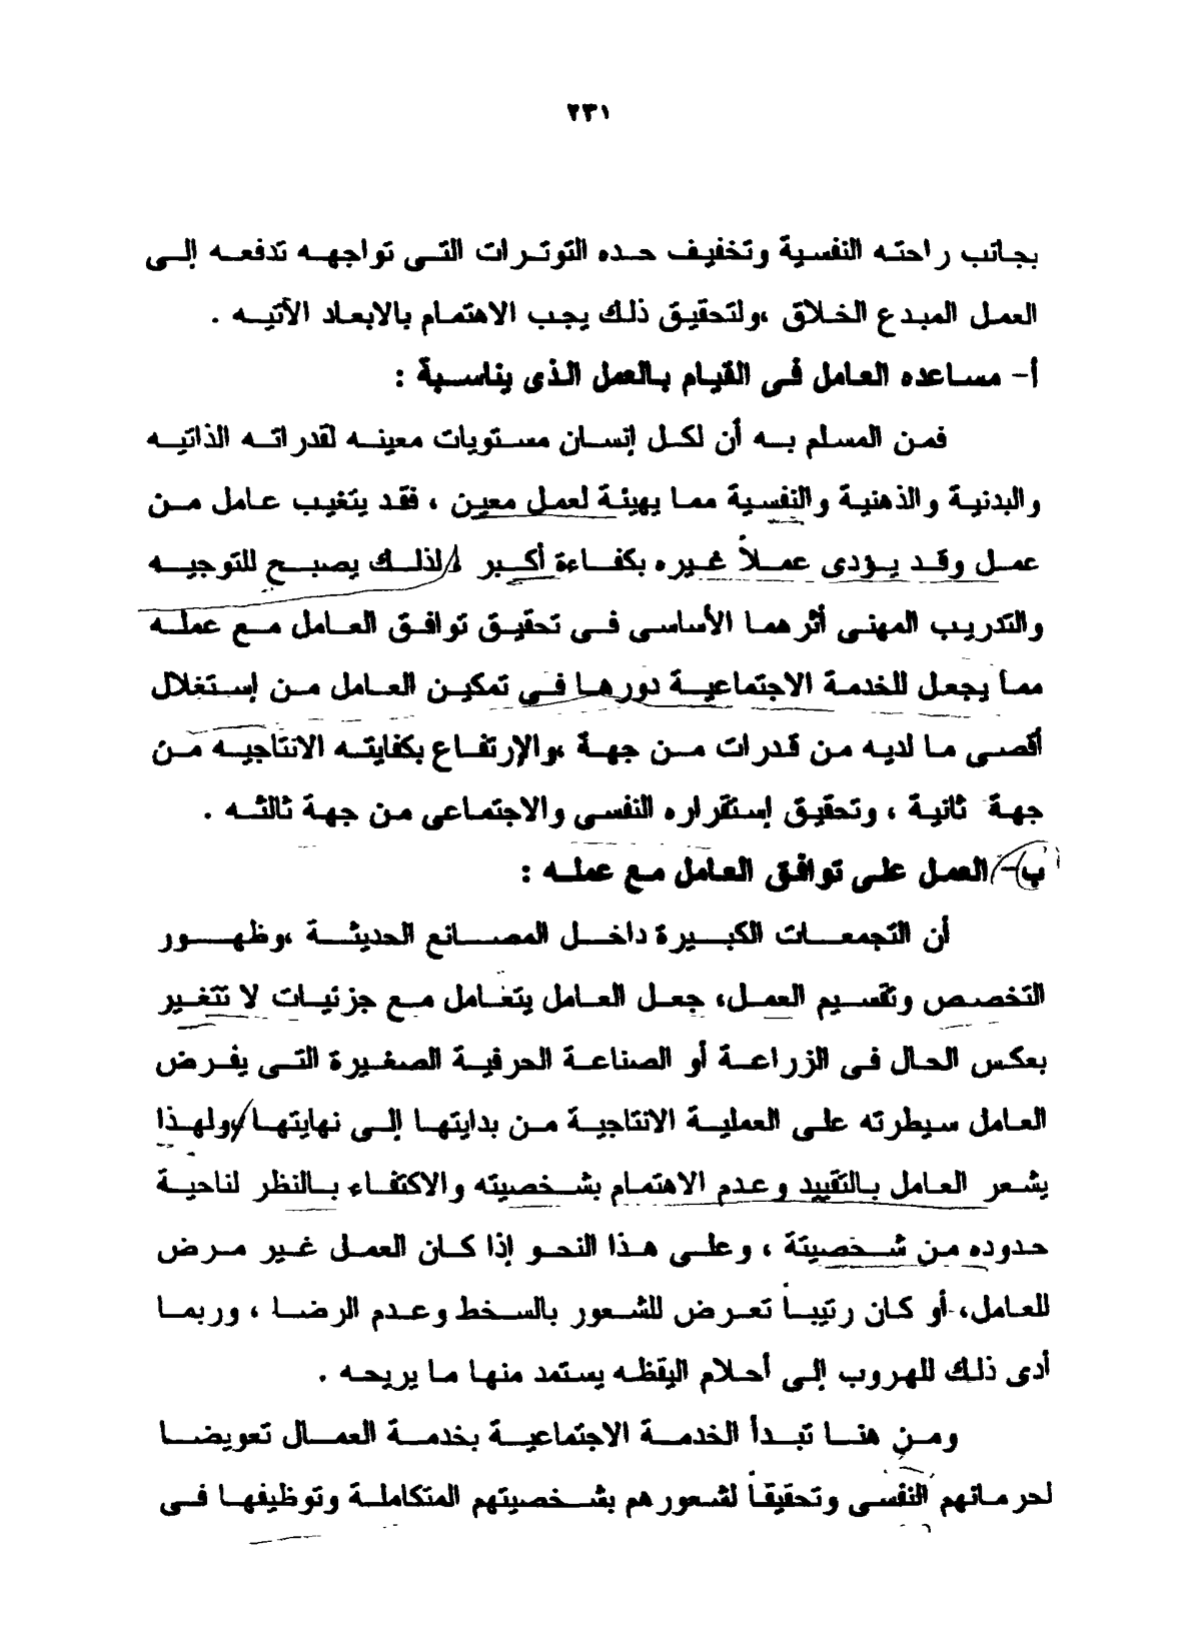 ٢٣١
بجانب راحته النفسية وتخفيف حده التوترات التى تواجهه تدفعه إلى
العمل المبدع الخلاق ،ولتحقيق ذلك يجب الاهتمام بالابعاد الآتيه .
أ- مساعده العامل فى القيام بالعمل الذى يناسبة :
فمن المسلم به أن لكل إنسان مستويات معينه لقدراته الذاتيه
والبدنية والذهنية والنفسية مما يهيئة لعمل معين ، فقد يتغيب عامل من
عمل وقد يؤدى عملاً غيره بكفاءة أكبر لذلك يصبح للتوجيه
والتدريب المهنى أثرهما الأساسى فى تحقيق توافق العامل مع عمله
مما يجعل للخدمة الاجتماعية دورها فى تمكين العامل من إستغلال
أقصى ما لديه من قدرات من جهة ،والإرتفاع بكفايته الانتاجيه من
جهة ثانية ، وتحقيق إستقراره النفسى والاجتماعى من جهة ثالثه .
ب- العمل على توافق العامل مع عمله :
أن التجمعات الكبيرة داخل المصانع الحديثة ،وظهور
التخصص وتقسيم العمل، جعل العامل يتعامل مع جزئيات لا تتغير
بعكس الحال فى الزراعة أو الصناعة الحرفية الصغيرة التى يفرض
العامل سيطرته على العملية الانتاجية من بدايتها إلى نهايتها ،ولهذا
يشعر العامل بالتقييد وعدم الاهتمام بشخصيته والاكتفاء بالنظر لناحية
حدوده من شخصيتة ، وعلى هذا النحو إذا كان العمل غير مرض
للعامل، أو كان رتيباً تعرض للشعور بالسخط وعدم الرضا ، وربما
أدى ذلك للهروب إلى أحلام اليقظه يستمد منها ما يريحه .
ومن هنا تبدأ الخدمة الاجتماعية بخدمة العمال تعويضا
لحرمانهم النفسى وتحقيقاً لشعورهم بشخصيتهم المتكاملة وتوظيفها فى